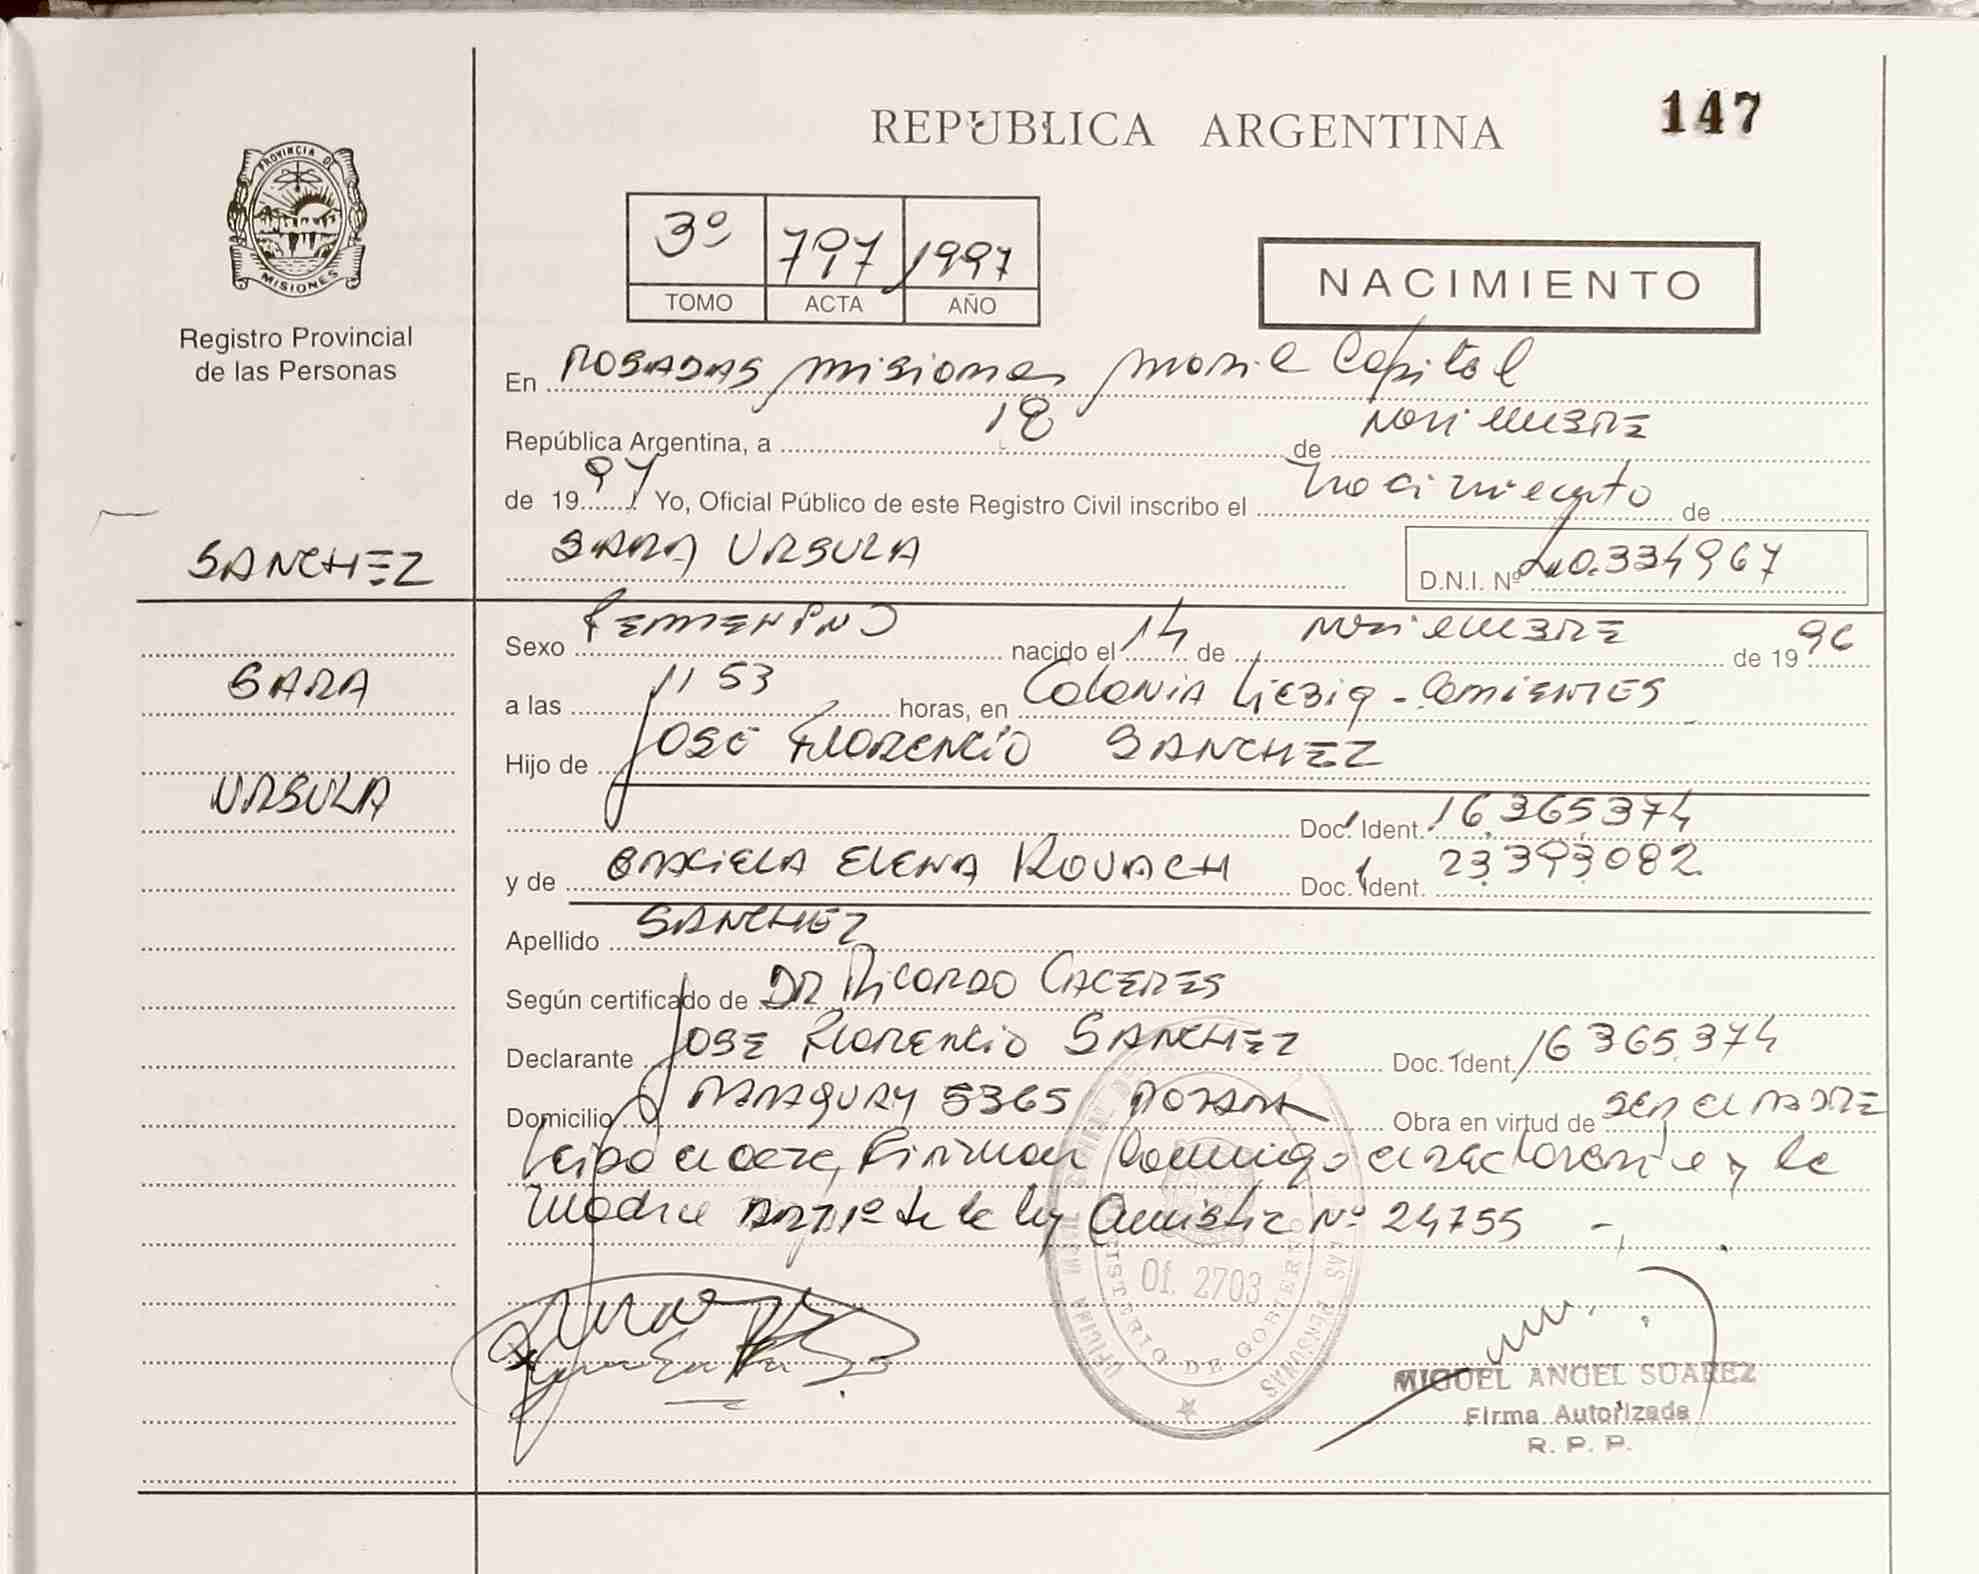 REPUBLICA ARGENTINA
147
PROVINCIA DE
MISIONES
Registro Provincial
de las Personas
3º 797 1997
TOMO ACTA AÑO
NACIMIENTO
En POSADAS Misiones Movil Capital
República Argentina, a 18 de NOVIEMBRE
de 1997 Yo, Oficial Público de este Registro Civil inscribo el Nacimiento de
SANCHEZ
SARA URSULA
D.N.I. Nº 40.334967
Sexo FEMENINO nacido el 14 de NOVIEMBRE de 1996
SARA
a las 11 53 horas, en COLONIA Liebig - CORRIENTES
Hijo de JOSE FLORENCIO SANCHEZ
URSULA
Doc. Ident. 16.365.374
y de GRACIELA ELENA ROVACH Doc. Ident. 23.393.082
Apellido SANCHEZ
Según certificado de DR RICARDO CACERES
Declarante JOSE FLORENCIO SANCHEZ Doc. Ident. 16 365.374
Domicilio PARAGUAY 5365 Obra en virtud de SER EL PADRE
Leida el acta, Firman Conmigo el declarante y la
Madre de la ley Amnistia Nº 24755 -
Of. 2703
MINISTERIO DE GOBIERNO
MIGUEL ANGEL SUAREZ
Firma Autorizada
R. P. P.